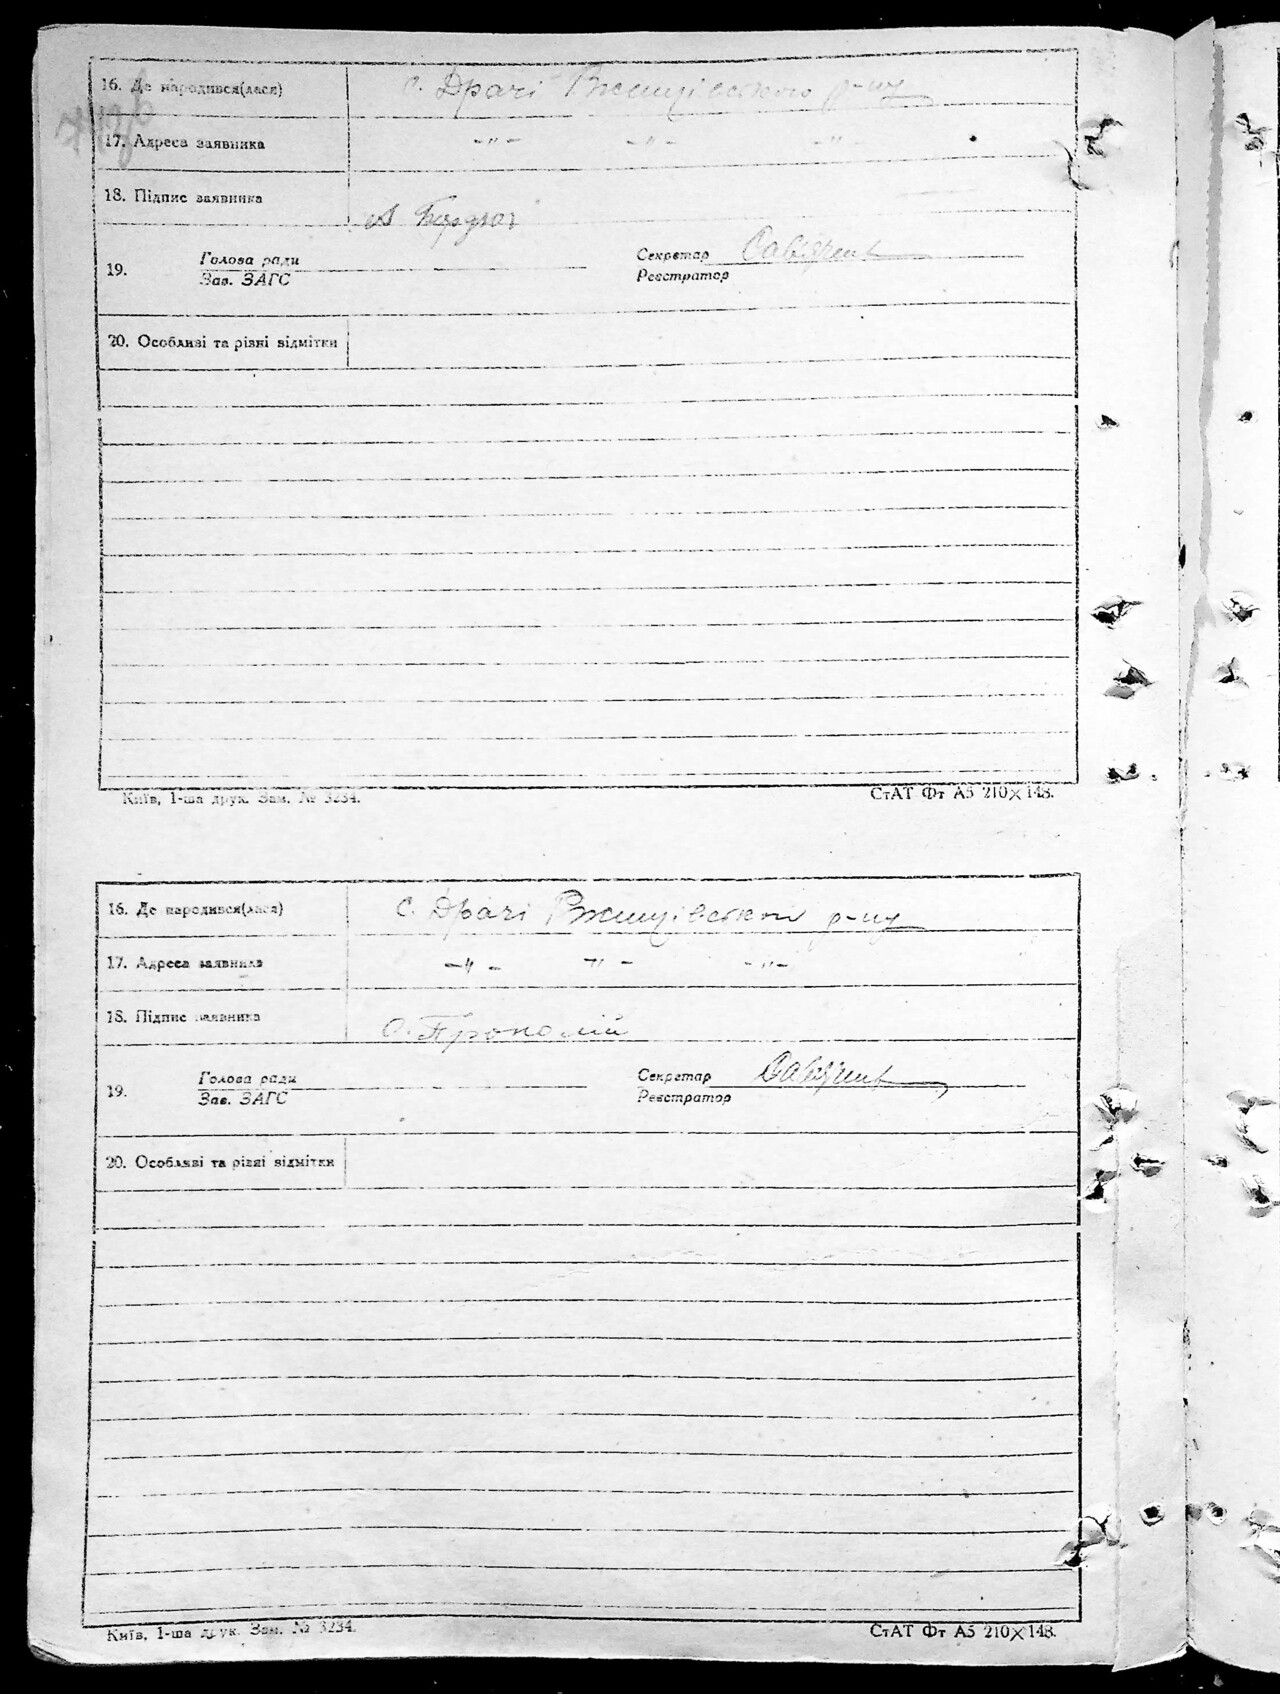 16. Де народився(лася) с. Драчі Ржищівського р-ну
17. Адреса заявника -"- -"- -"-
18. Підпис заявника
19. Голова ради Секретар
Зав. ЗАГС Реєстратор
20. Особливі та різні відмітки
Київ, 1-ша друк. Зам. № 3234. СтАТ Фт А5 210×148.
16. Де народився(лася) с. Драчі Ржищівського р-ну
17. Адреса заявника -"- -"- -"-
18. Підпис заявника О.
19. Голова ради Секретар
Зав. ЗАГС Реєстратор
20. Особливі та різні відмітки
Київ, 1-ша друк. Зам. № 3234. СтАТ Фт А5 210×148.